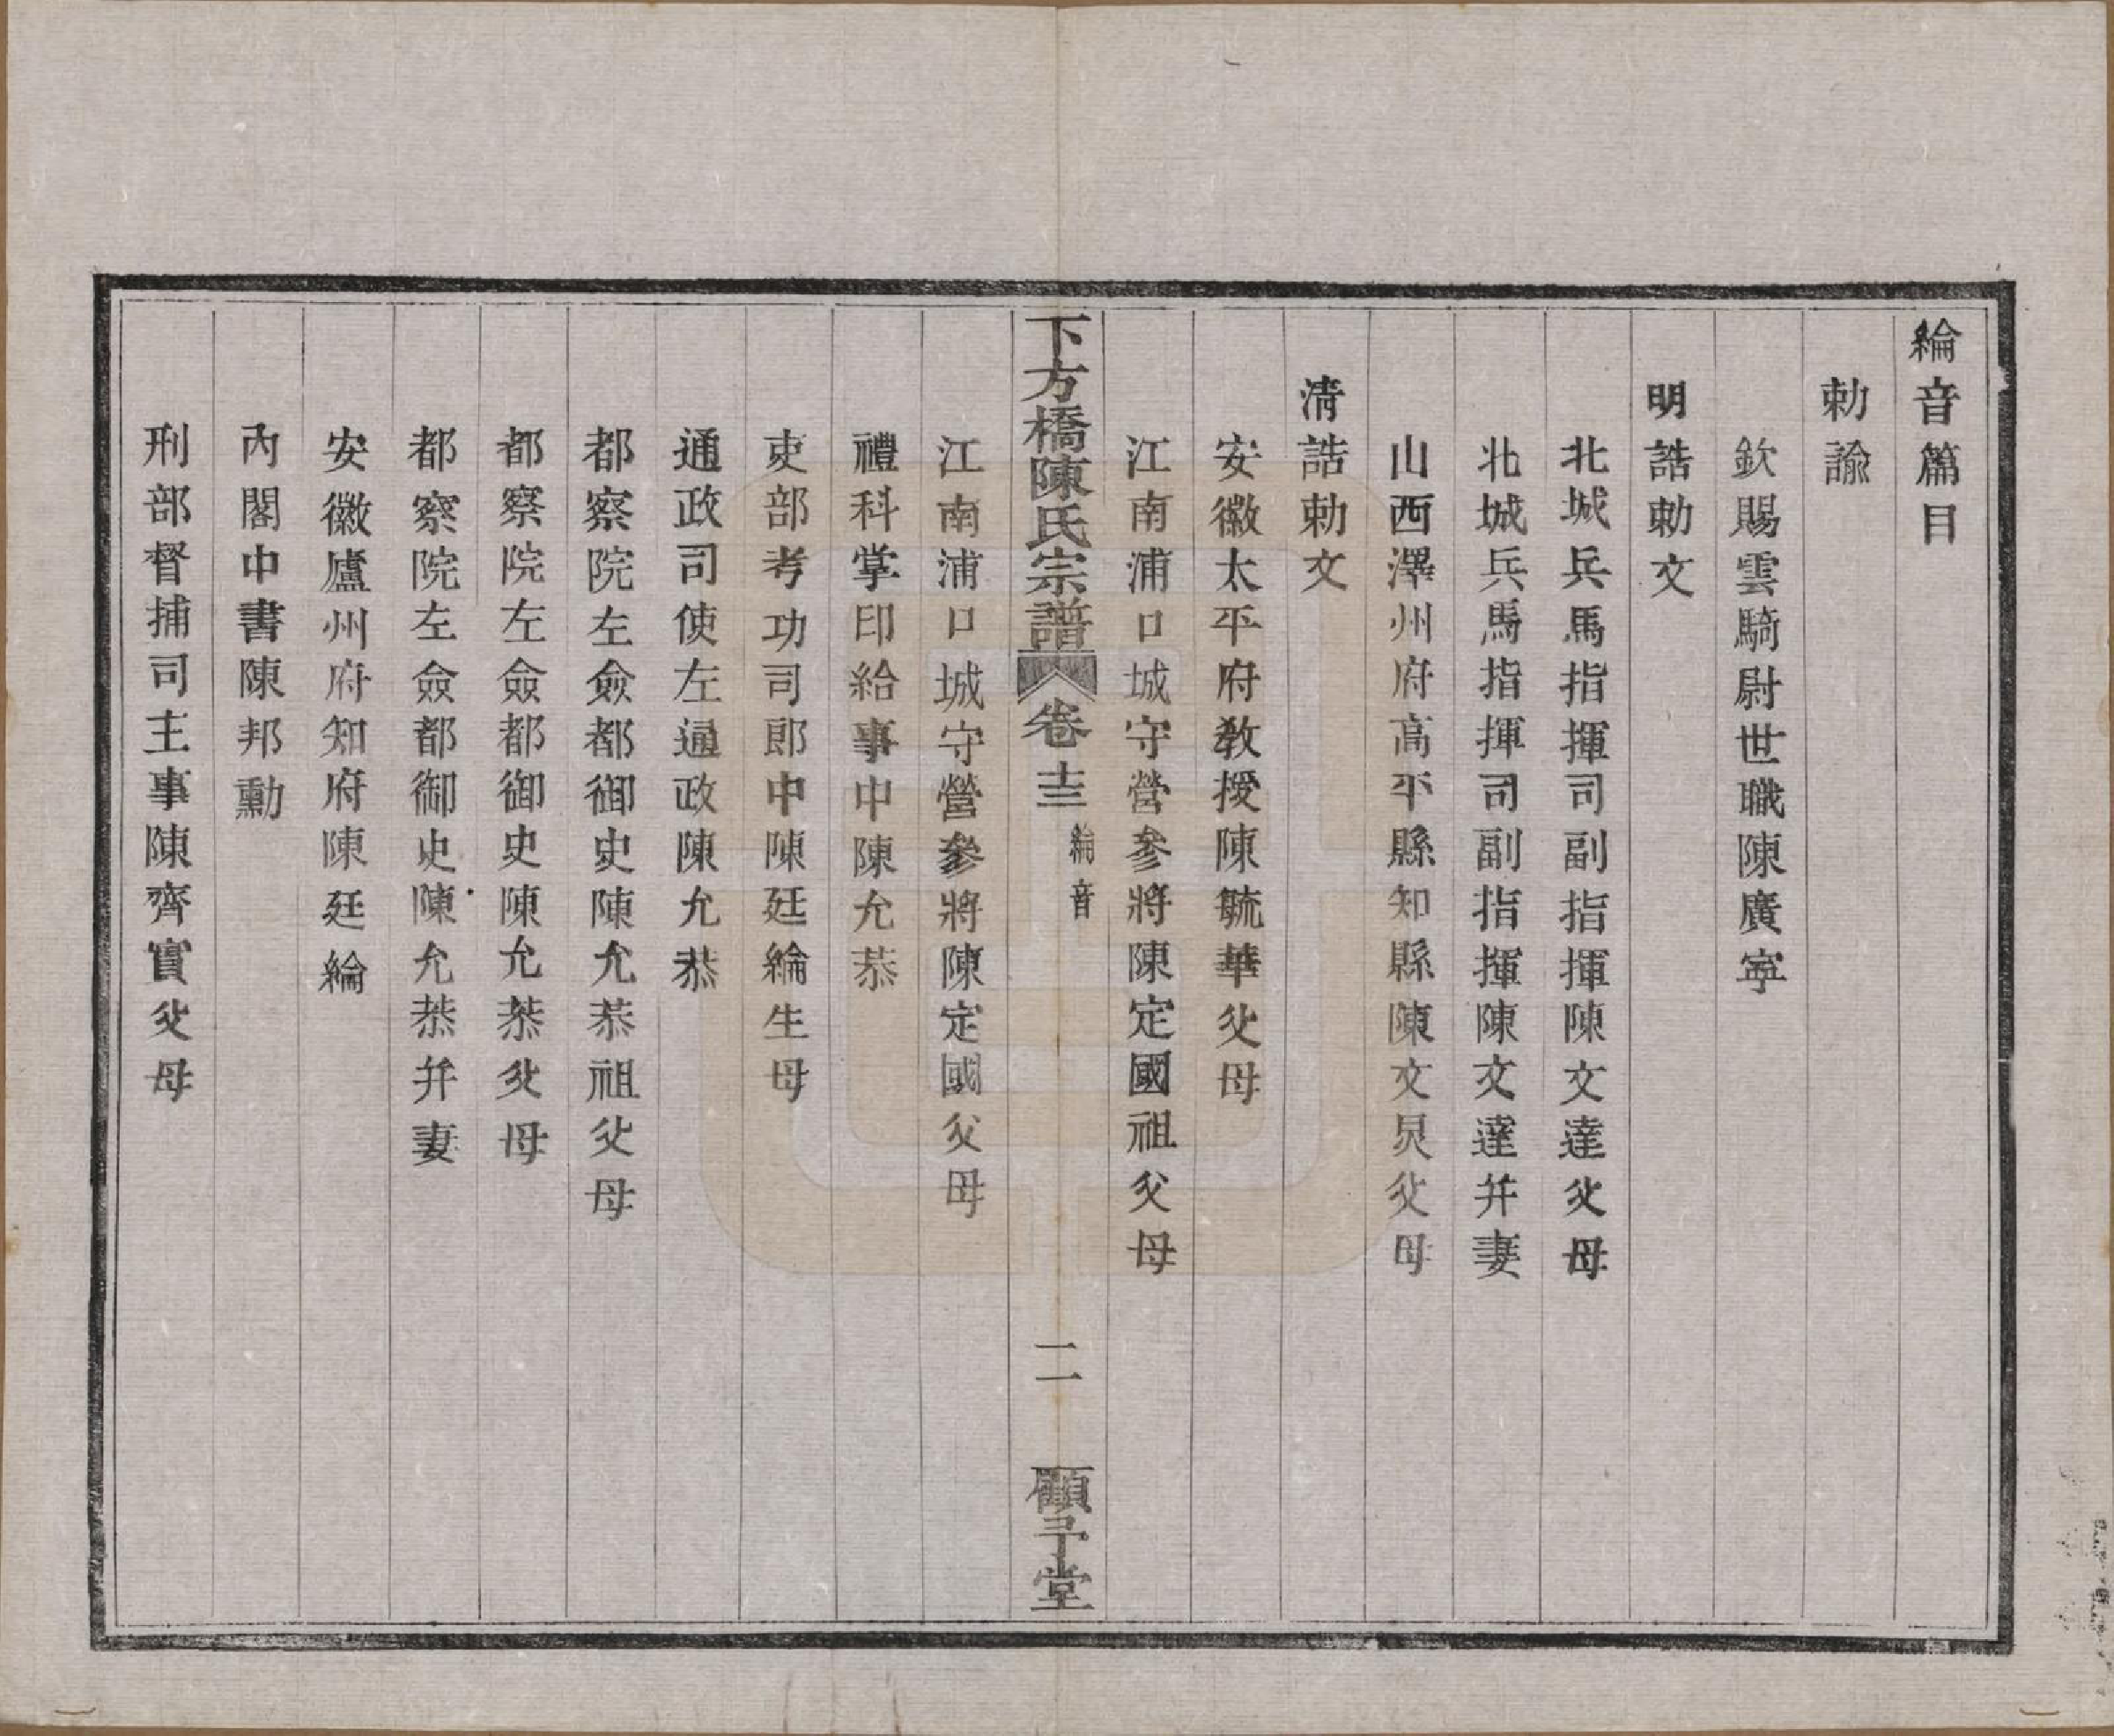 綸音篇目
勅諭
欽賜雲騎尉世職陳廣寧
明誥勅文
北城兵馬指揮司副指揮陳文達父母
北城兵馬指揮司副指揮陳文達并妻
山西澤州府高平縣知縣陳文炅父母
清誥勅文
安徽太平府教授陳毓華父母
江南浦口城守營參將陳定國祖父母
下方橋陳氏宗譜 卷十三 綸音 二 顧予堂
江南浦口城守營參將陳定國父母
禮科掌印給事中陳允恭
吏部考功司郎中陳廷綸生母
通政司使左通政陳允恭
都察院左僉都御史陳允恭祖父母
都察院左僉都御史陳允恭父母
都察院左僉都御史陳允恭并妻
安徽廬州府知府陳廷綸
內閣中書陳邦勳
刑部督捕司主事陳齊實父母